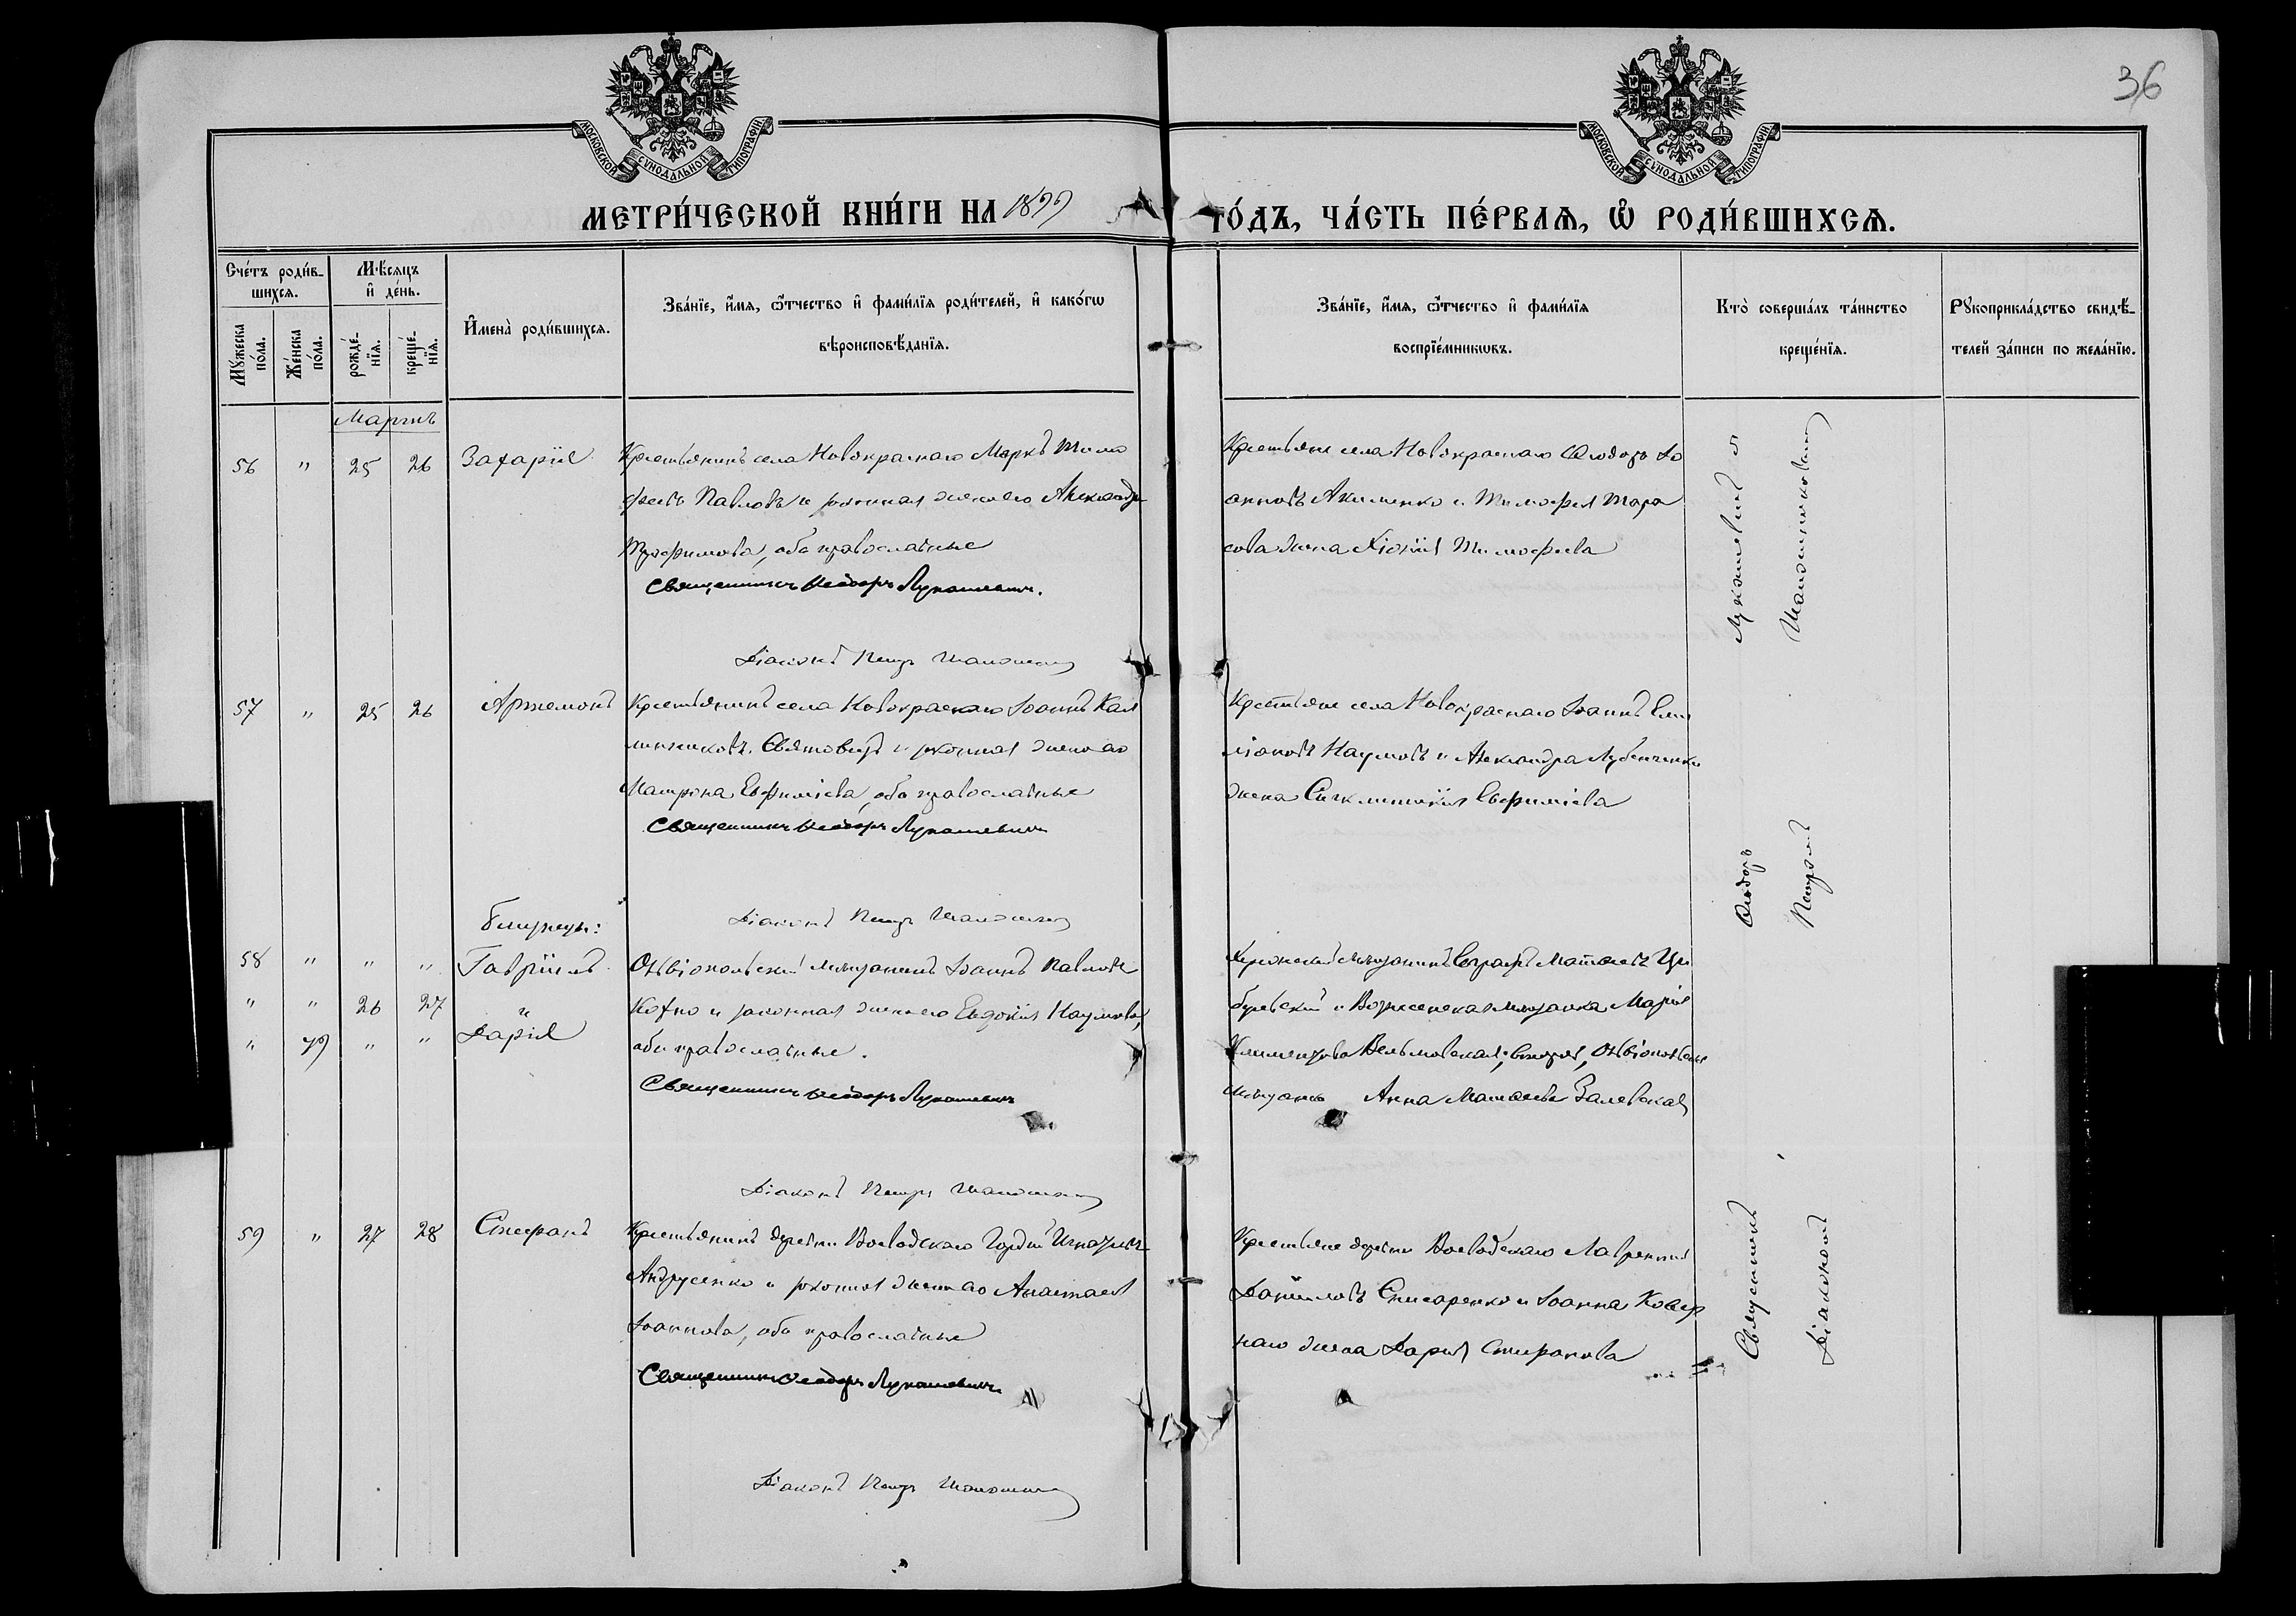 36
МОСКОВСКОЙ СѴНОДАЛЬНОЙ ТИПОГРАФІИ
МОСКОВСКОЙ СѴНОДАЛЬНОЙ ТИПОГРАФІИ
МЕТРИ́ЧЕСКОЙ КНИ́ГИ НА 1899 ГО́ДЪ, ЧА́СТЬ ПЕ́РВАѦ, Ѡ҆ РОДИ́ВШИХСѦ.
Сче́тъ роди́в-
шихсѧ.
Мѣ́сѧцъ
и҆ де́нь.
Мꙋ́жеска по́ла.
Же́нска по́ла.
рожде́-нїѧ.
креще́-нїѧ.
И҆мена̀ роди́вшихсѧ.
Зва́нїе, и҆́мѧ, ѻ҆́тчество и҆ фами́лїѧ роди́телей, и҆ како́гѡ
вѣроисповѣ́данїѧ.
Зва́нїе, и҆́мѧ, ѻ҆́тчество и҆ фами́лїѧ
воспрїе́мникѡвъ.
Кто̀ соверша́лъ та́инство
креще́нїѧ.
Рꙋкоприкла́дство свидѣ́-
телей за́писи по жела́нїю.
Мартъ
56 " 25 26 Захарія Крестьянинъ села Новокраснаго Маркъ Тимо
феевъ Павловъ и законная жена его Александра
Трофимова, оба православные
Священникъ Ѳеодоръ Лукашевичъ.
Діаконъ Петръ
Крестьяне села Новокраснаго Ѳеодоръ Іо
анновъ Акименко и Тимофея Тара
сова жена Тимофеева
57 " 25 26 Артемонъ Крестьянинъ села Новокраснаго Іоаннъ Кал
линиковъ Святовецъ и законная жена его
Матрона Евфиміева, оба православные
Священникъ Ѳеодоръ Лукашевичъ
Діаконъ Петръ
Крестьяне села Новокраснаго Іоаннъ Еми
ліановъ Наумовъ и Александра Лубенченко
жена Синклитикія Евфиміева
близнецы:
58 " " " Гавріилъ Овідіопольскій мѣщанинъ Іоаннъ Павловъ
" " 26 27 и Кохно и законная жена его Евдокія Наумова,
" 49 " " Дарія оба православные.
Священникъ Ѳеодоръ Лукашевичъ
Діаконъ Петръ
Херсонскій мѣщанинъ Евграфъ Матѳеевъ
и Вознесенская мѣщанка Марія
Климентова
мѣщанка Анна Матѳеева Залевская
59 " 27 28 Стефанъ Крестьянинъ деревни Воеводскаго Гордій Игнатіевъ
Андрусенко и законная жена его Анастасія
Іоаннова, оба православные
Священникъ Ѳеодоръ Лукашевичъ.
Діаконъ Петръ
Крестьяне деревни Воеводскаго Лаврентій
Даніиловъ Списаренко и Іоанна
наго жена Дарія Стефанова
Священникъ Ѳеодоръ Лукашевичъ съ
Діакономъ Петромъ